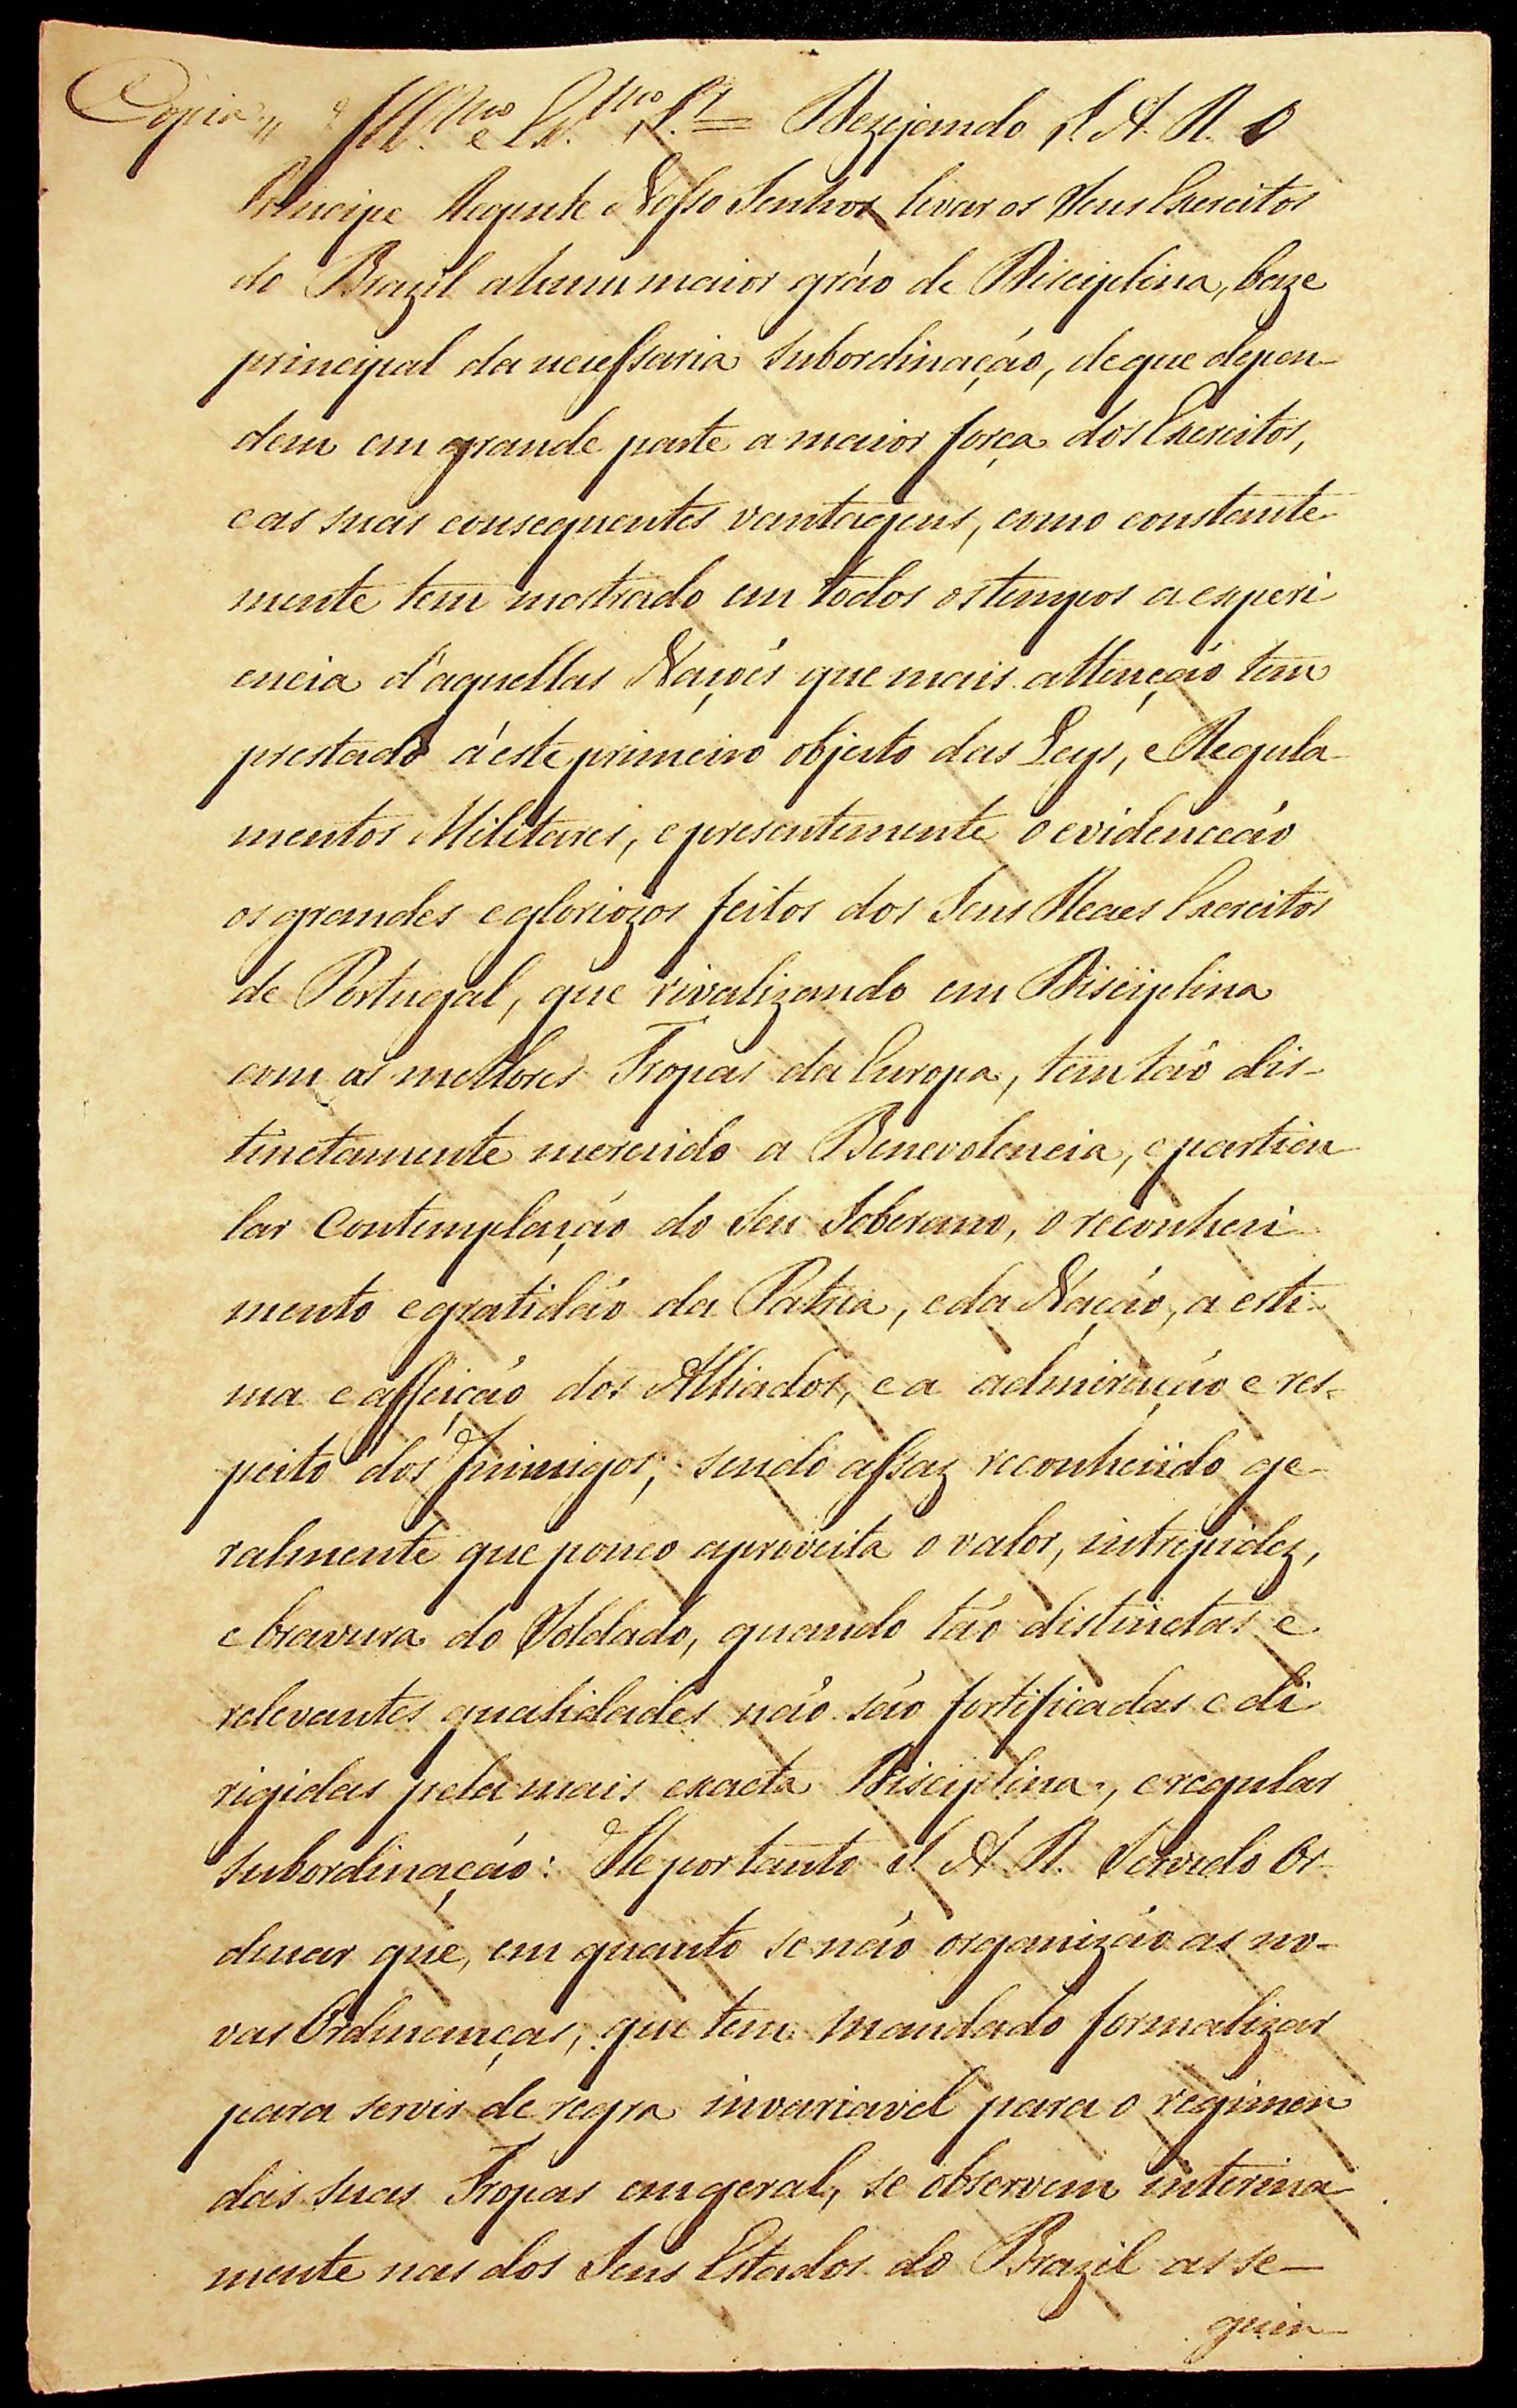 Copia,, Ill.mo e Ex.mo S.r = Dezejando S. A. R. O
Principe Regente Nosso Senhor levar os Seus Exercitos
do Brazil a hum maior gráo de Disciplina, baze
principal da necessaria subordinação, de que depen-
dem em grande parte a maior força dos Exercitos,
e as suas consequentes vantagens, como constante-
mente tem mostrado em todos os tempos a experi
encia d'aquellas Nações que mais attenção tem
prestado á este primeiro objecto das Leys, e Regula-
mentos Militares, e presentemente o evidenceão
os grandes e gloriozos feitos dos Seus Reaes Exercitos
de Portugal, que rivalizando em Disciplina
com as melhores Tropas da Europa, tem tão dis-
tinctamente merecido a Benevolencia, e particu-
lar Contemplação do Seu Soberano, o reconheci-
mento e gratidão da Patria, e da Nação, a esti-
ma e affeição dos Alliados, e a admiração e res-
peito dos Inimigos; sendo assaz reconhecido ge-
ralmente que pouco aproveita o valor, intrepidez,
e bravura do Soldado, quando tão distinctas e
relevantes qualidades não são fortificadas e di
rigidas pela mais exacta Disciplina, e regular
subordinação: He por tanto S. A. R. Servido Or-
denar que, em quanto se não organizão as no-
vas Ordenanças, que tem mandado formalizar
para servir de regra invariavel para o regimen
das suas Tropas em geral, se observem interina-
mente nas dos Seus Estados do Brazil as se-
guin-